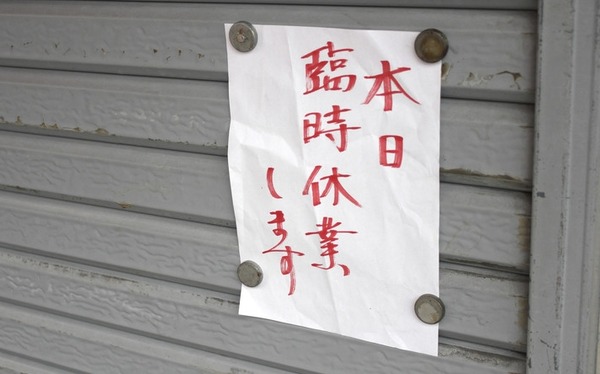 本日
臨時休業
します